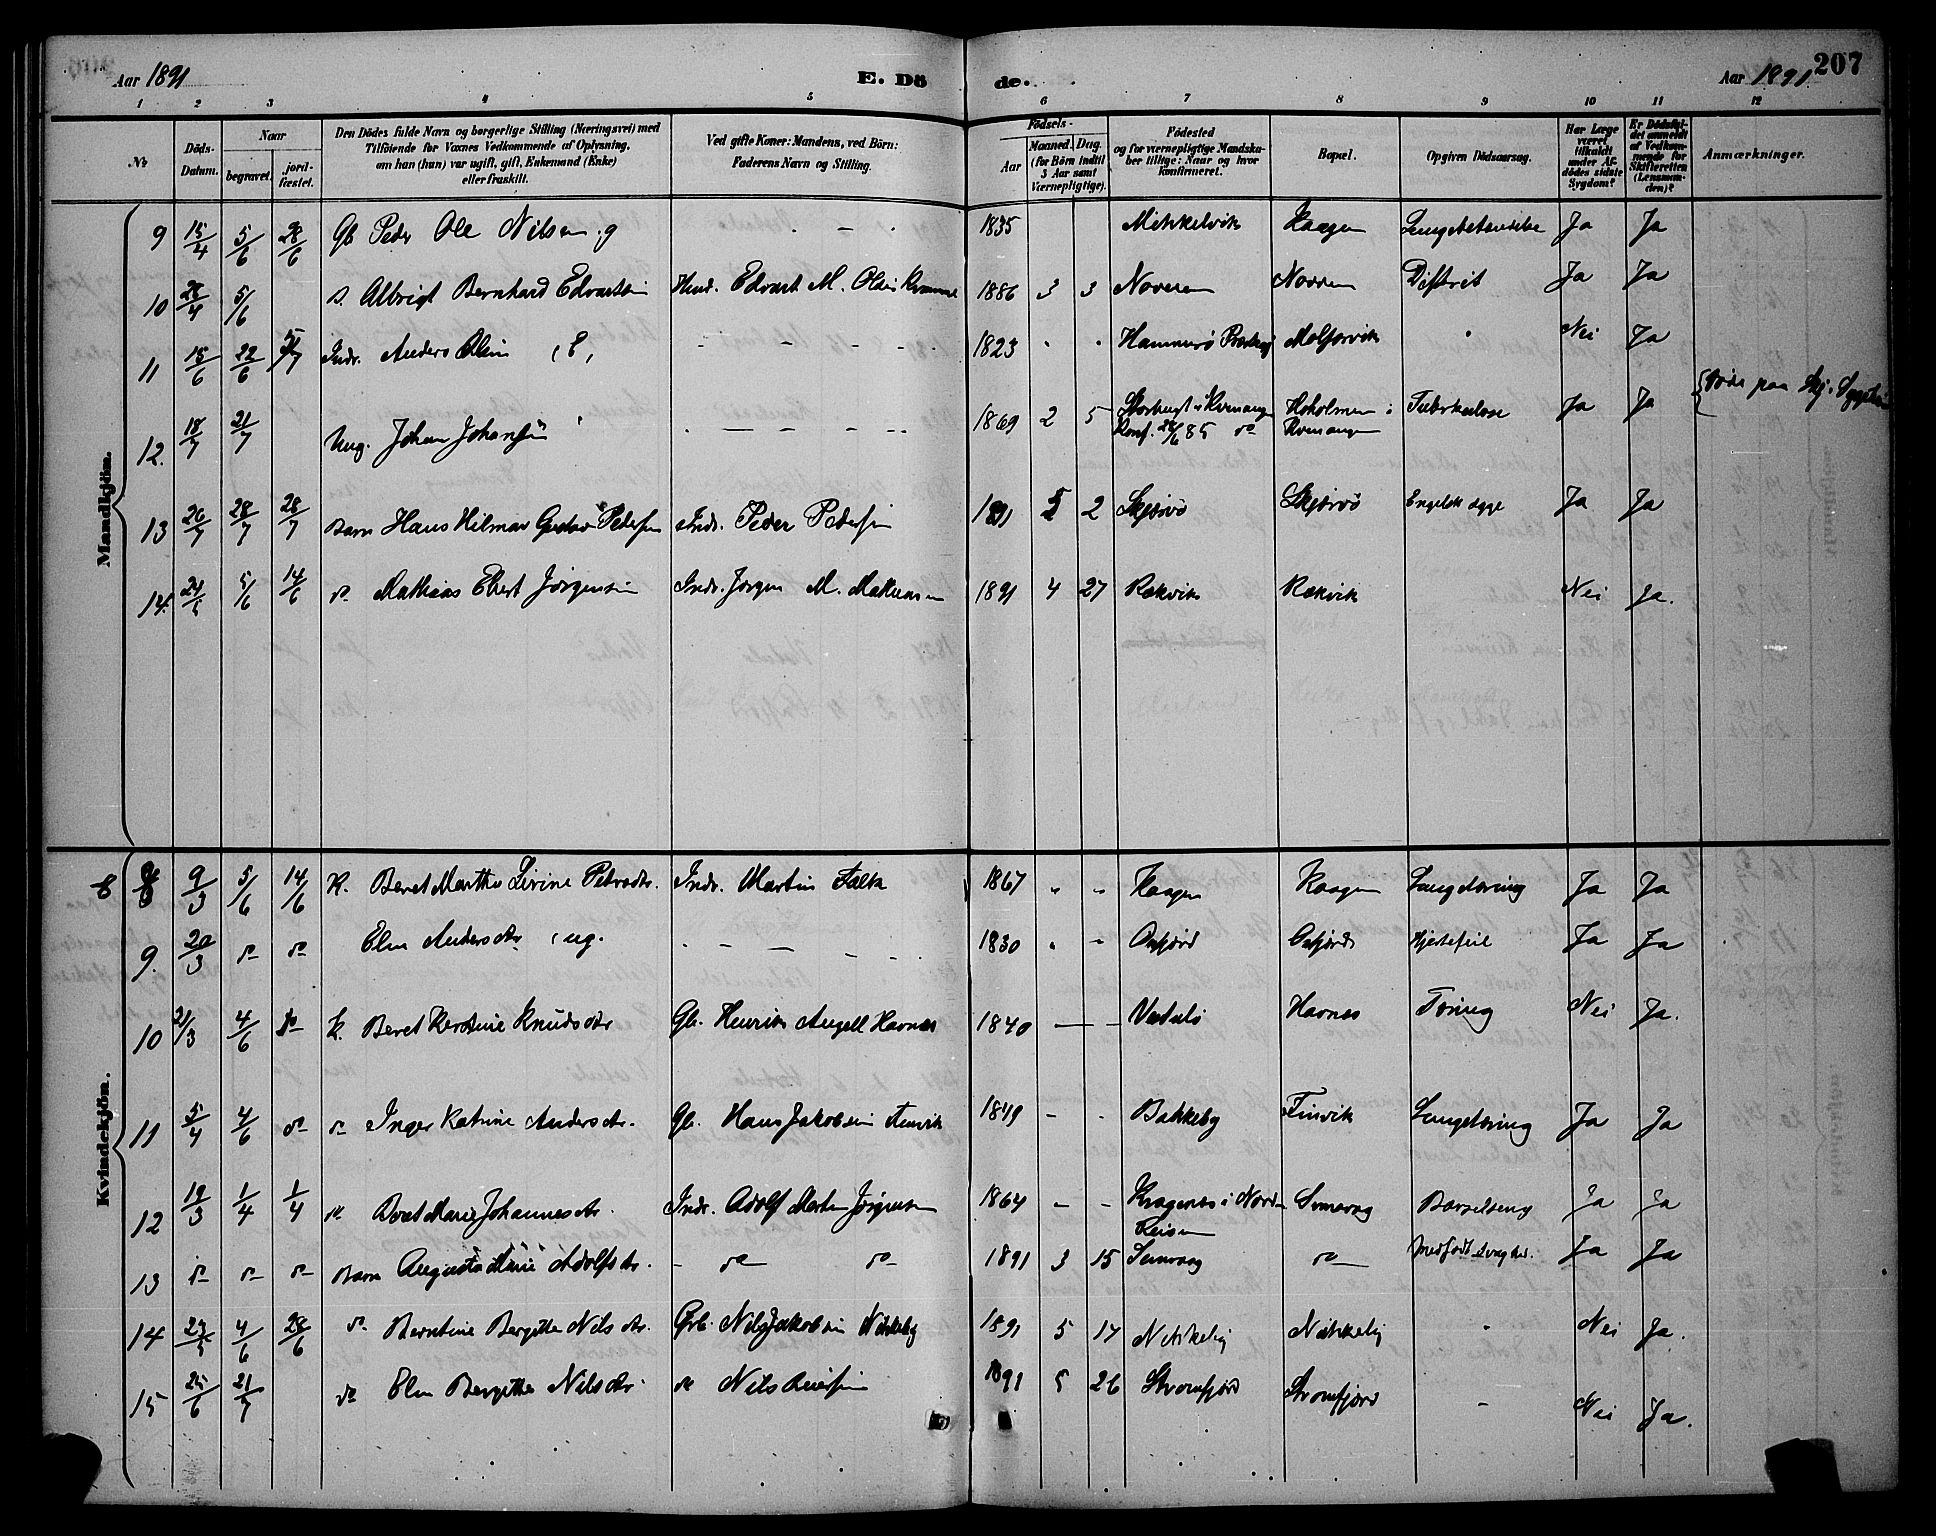 Aar 1891 E. Dö de. Aar 1891. 207
1 2 3 4 5 6 7 8 9 10 11 12
No Döds-Datum. Naar begravet. jord-fæstet. Den Dödes fulde Navn og borgerlige Stilling (Næringsvei) med Tilföiende for Voxnes Vedkommende af Oplysning, om han (hun) var ugift, gift, Enkemand (Enke) eller fraskilt. Ved gifte Koner: Mandens, ved Börn: Faderens Navn og Stilling. Födsels- Aar Maaned. Dag. (for Börn indtil 3 Aar samt Værnepligtige). Födested og for værnepligtige Mandska-ber tillige: Naar og hvor konfirmeret. Bopæl. Opgiven Dödsaarsag. Har Læge været tilkaldt under Af-dödes sidste Sygdom? Er Dödsfal-det anmeldt af Vedkom-mende for Skifteretten (Lensman-den)? Anmærkninger.
Mandkjön.
9 15/4 5/6 28/6 Gb Peder Ole Nilsen g - 1835 Mikkelvik Kaagen Ja Ja
10 28/4 5/6 Albrigt Bernhard Edvartsen Edvart M. Olsen 1886 3 3 Ja Ja
11 15/6 22/6 Indr. Anders Olsen (E) - - - - 1823 Nei Ja
12. 18/7 21/7 Ung. Johan Johansen - - - 1869 2 5 Konf. 85 Hokolmen i Kvænangen Tuberkulose Ja Ja
13 26/7 28/7 28/7 Barn Hans Hilmar Gustav Pedersen Indr. Peder Pedersen 1891 2 Skjervö Skjervö Engelsk syge Ja Ja
14. 5/6 14/6 do Mathias Ebert Jörgensen Indr. Jörgen M. 1891 4 27 Rakvik Rakvik Nei Ja.
Kvindekjön.
8 9/3 5/6 14/6 K. Beret Martha Livine Pedersdtr. Indr. Martin Falk 1867 Kaagen Kaagen Langtæring Ja Ja
9. 20/3 do do Elen Andersdtr (ug. - - - 1830 Oxfjord Oxfjord Hjertefeil Ja Ja
10 21/3 4/6 do K. Beret Kerstine Knudsdtr Gb. Henrik Angell Havnæs 1840 - - Havnæs Tæring Nei Ja.
11 5/4 4/6 do do Inger Katrine Andersdtr. Gb. Hans Jakobsen Finvik 1849 - - Bakkeby Finvik Langtæring Ja Ja
12 19/3 1/4 1/4 do Beret Marie Johannesdtr. Indr. Adolf Martin Jörgensen 1864 - - Kragenæs i Nord-Reisen Barselseng Ja Ja
13 do do do Barn Augusta Marie Adolfsdtr. - do do 1891 3 15 do Medfödt Ja Ja
14 4/6 28/6 do Berntine Bergitte Nilsdtr. Nils Jakobsen Nikkeby 1891 5 17 Nikkeby Nikkeby Nei Ja.
15 25/6 21/7 do Elen Bergitte Nilsdtr do Nils 1891 5 26 Straumfjord Straumfjord - Nei Ja.